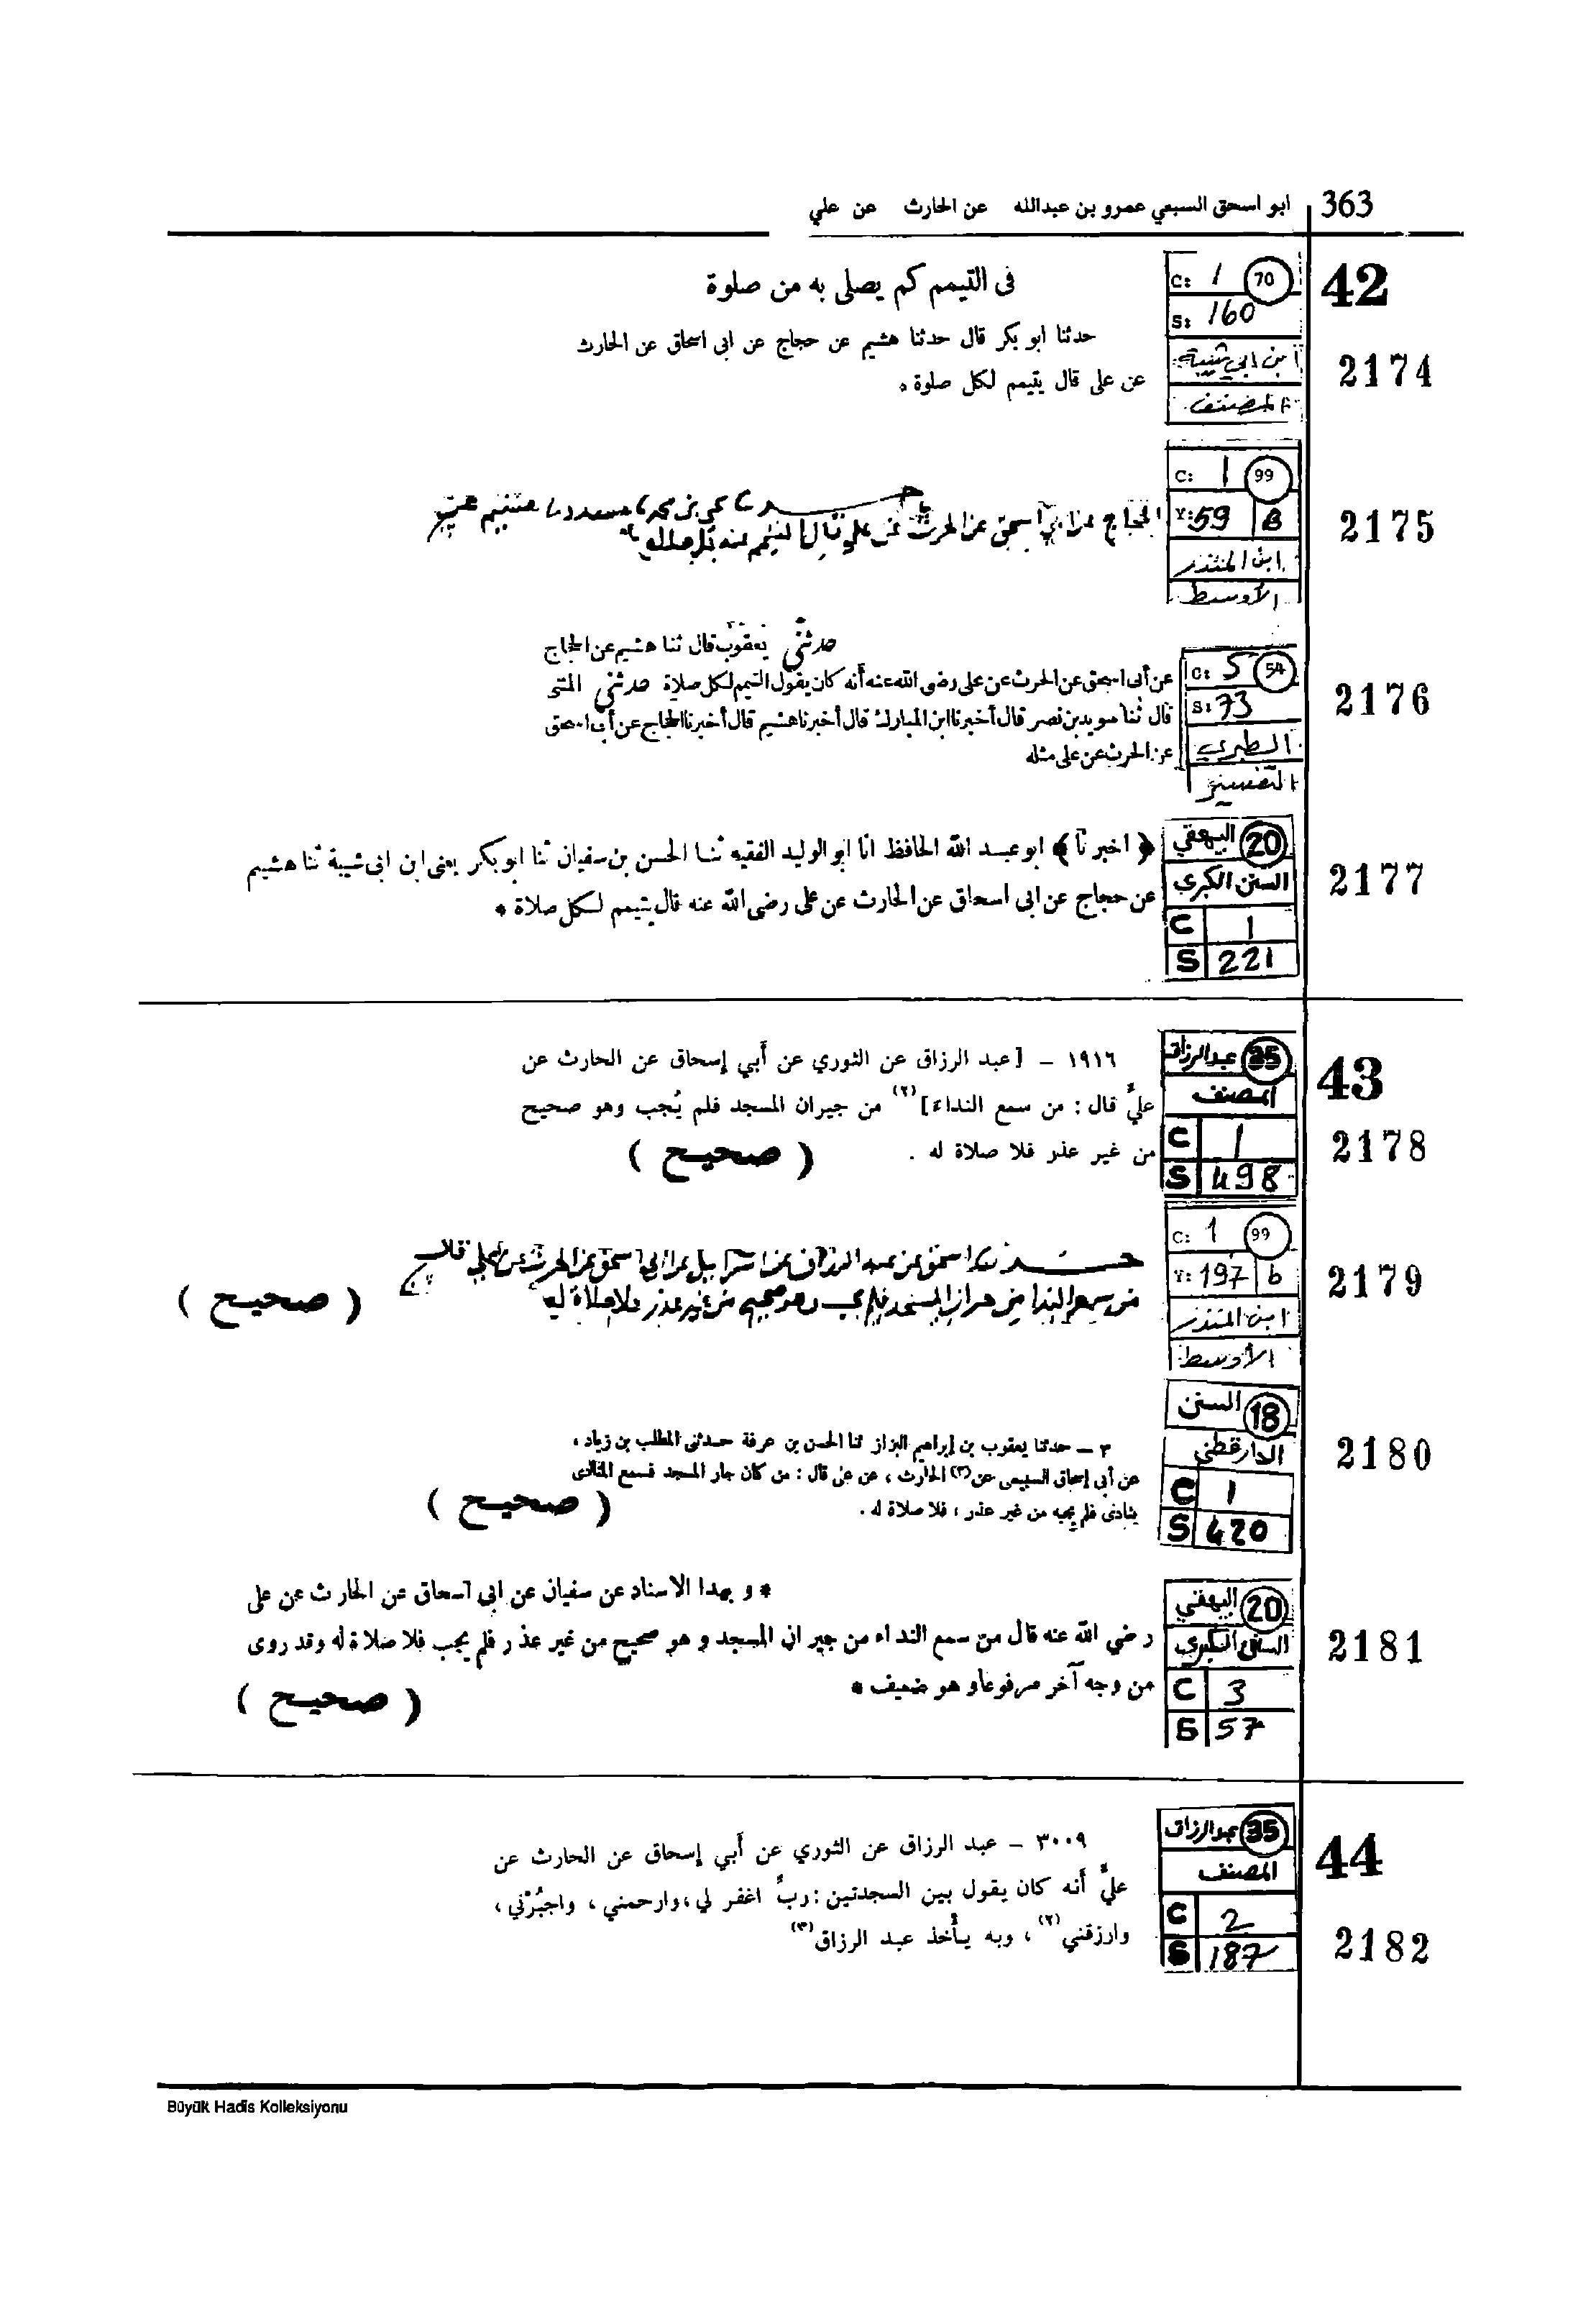 363 ابو اسحق السبعي عمرو بن عبدالله عن الحارث عن علي
42
C: 1 70
S: 160
ابن ابي شيبة
المصنف
2174
فى التيمم كم يصلى به من صلوة
حدثنا ابو بكر قال حدثنا هشيم عن حجاج عن ابى اسحاق عن الحارث
عن على قال يتيمم لكل صلوة *
C: 1 99
Y: 59 B
ابن المنذر
الأوسط
2175
هشيم عن
الحجاج عن ابي اسحق عن الحرث عن علي قال التيمم عند كل صلاة
C: 5 54
S: 73
الطبري
التفسير
2176
حدثني يعقوب قال ثنا هشيم عن الحجاج
عن أبى اسحق عن الحرث عن على رضى الله عنه أنه كان يقول التيمم لكل صلاة حدثني المثنى
قال ثنا سويد بن نصر قال أخبرنا ابن المبارك قال أخبرنا هشيم قال أخبرنا الحجاج عن أبى اسحق
عن الحرث عن على مثله
البيهقي 20
السنن الكبرى
C 1
S 221
2177
﴿ اخبرنا ﴾ ابو عبد الله الحافظ انا ابو الوليد الفقيه ثنا الحسن بن سفيان ثنا ابو بكر يعنى ابن ابى شيبة ثنا هشيم
عن حجاج عن ابى اسحاق عن الحارث عن على رضى الله عنه قال يتيمم لكل صلاة *
43
عبد الرزاق 35
المصنف
C 1
S 498
2178
١٩١٦ – [عبد الرزاق عن الثوري عن أبي إسحاق عن الحارث عن
عليّ قال : من سمع النداء](٢) من جيران المسجد فلم يُجب وهو صحيح
من غير عذر فلا صلاة له .
( صحيح )
C: 1 99
Y: 197 b
ابن المنذر
الأوسط
2179
حدثنا اسحق عن عبد الرزاق عن اسرائيل عن ابي اسحق عن الحرث عن علي قال
من سمع النداء من جيران المسجد فلم يجب وهو صحيح من غير عذر فلا صلاة له
( صحيح )
السنن 18
الدارقطني
C 1
S 420
2180
٣ – حدثنا يعقوب بن إبراهيم البزاز ثنا الحسن بن عرفة حدثنى المطلب بن زياد ،
عن أبى إسحاق السبيعى عن(٣) الحارث ، عن على قال : من كان جار المسجد فسمع المنادى
ينادى فلم يجبه من غير عذر ، فلا صلاة له .
( صحيح )
البيهقي 20
السنن الكبرى
C 3
S 57
2181
* و بهذا الاسناد عن سفيان عن ابى اسحاق عن الحارث عن على
رضي الله عنه قال من سمع النداء من جيران المسجد و هو صحيح من غير عذر فلم يجب فلا صلاة له وقد روى
من وجه آخر مرفوعا و هو ضعيف *
( صحيح )
44
عبد الرزاق 35
المصنف
C 2
S 187
2182
٣٠٠٩ – عبد الرزاق عن الثوري عن أبي إسحاق عن الحارث عن
عليّ أنه كان يقول بين السجدتين : ربّ اغفر لي ، وارحمني ، واجبُرْني ،
وارزقني(٢) ، وبه يأخذ عبد الرزاق(٣)
Büyük Hadis Kolleksiyonu